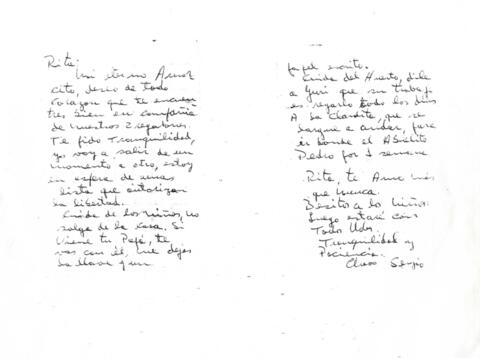 Rita:
Mi eterno Amor
cito, deseo de todo
corazón que te encuen
tres bien en compañía
de nuestros 2 regalones.
Te pido Tranquilidad,
yo voy a salir de un
momento a otro, estoy
en espera de unas
lista que autorizan
la libertad.
Cuida de los niños, no
salga de la casa. Si
viene tu Papá, te
vas con él, me dejas
la llave y un
papel escrito.
Cuida del Huerto, dile
a Yuri que su trabajo
es regarlo todo los días
A la Claudita, que se
largue a andar, para
ir donde el Abuelito
Pedro por 1 semana
Rita, te Amo más
que nunca.
Besito a los niños.
luego estaré con
Todos Uds.
Tranquilidad y
Paciencia.
Chao Sergio